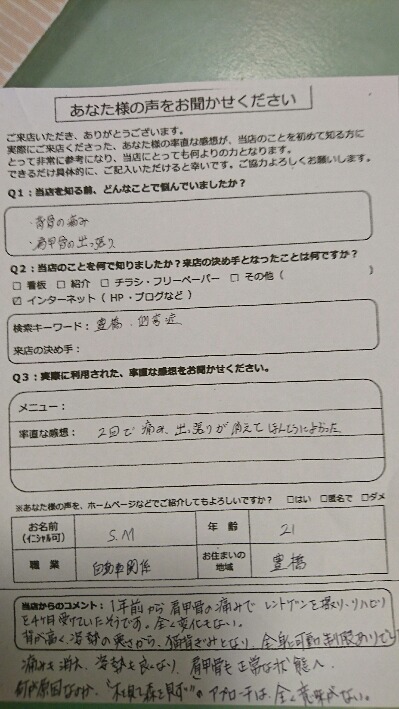 あなた様の声をお聞かせください
ご来店いただき、ありがとうございます。
実際にご来店くださった、あなた様の率直な感想が、当店のことを初めて知る方に
とって非常に参考になり、当店にとっても何よりの力となります。
できるだけ具体的に、ご記入いただけると幸いです。ご協力よろしくお願いします。
Q1：当店を知る前、どんなことで悩んでいましたか？
・背骨の痛み
・肩甲骨の出っ張り
Q2：当店のことを何で知りましたか？来店の決め手となったことは何ですか？
□ 看板 □ 紹介 □ チラシ・フリーペーパー □ その他（ ）
☑ インターネット（ HP・ブログなど ）
検索キーワード： 豊橋
来店の決め手：
Q3：実際に利用された、率直な感想をお聞かせください。
メニュー：
率直な感想： 2回で痛み、出っ張りが消えてほんとうによかった
※あなた様の声を、ホームページなどでご紹介してもよろしいですか？ □はい □匿名で □ダメ
お名前 S.M 年 齢 21
（イニシャル可）
職 業 自動車関係 お住まいの地域 豊橋
当店からのコメント： 1年前から肩甲骨の痛みでレントゲンを撮り、リハビリ
を4ヶ月受けていたそうです。全く変化もない。
背が高く、姿勢の悪さから、猫背ぎみとなり、全身に可動制限あり
痛みも消え、姿勢も良くなり、肩甲骨も正常な状態へ
何が原因なのか、"木を見て森を見ず"のアプローチは全く意味がない。